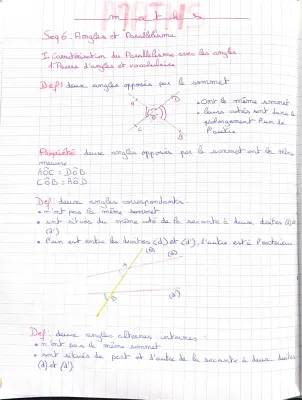 maths
Seq 6. Angles et Parallélisme
I Caractérisation du Parallélisme avec les angles
1 Paires d'angles et vocabulaire
Def: deux angles opposés par le sommet
• ont le même sommet
• leurs cotés sont dans le
prolongement l'un de
l'autre
Propriété deux angles opposés par le sommet ont la même
mesure
AOC = DOB
COB = AOD
Def: deux angles correspondants.
• n'ont pas le même sommet
• sont situés du même coté de la secante à deux droites (d) et
(d')
• l'un est entre les droites (d) et (d'), l'autre est à l'extérieur
Def: deux angles alternes internes:
• n'ont pas le même sommet
• sont situés de part et d'autre de la secante à deux droites
(d) et (d')